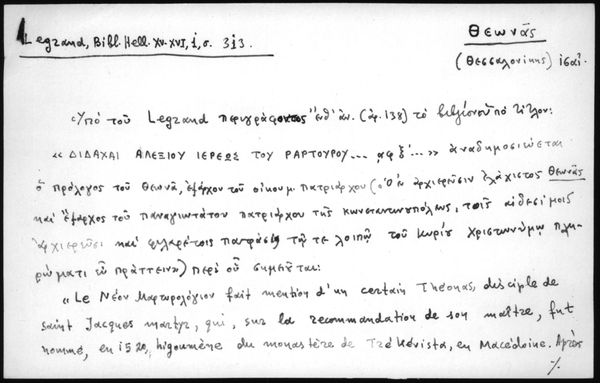 Legrand, Bibl. Hell. XV-XVI, i, σ. 313.
Θεωνᾶς
(Θεσσαλονίκης) ισαι.
Ὑπό τοῦ Legrand περιγράφοντος ἐνθ' ἀν. (ἀρ. 138) τό βιβλίον ὑπό τίτλον:
«ΔΙΔΑΧΑΙ ΑΛΕΞΙΟΥ ΙΕΡΕΩΣ ΤΟΥ ΡΑΡΤΟΥΡΟΥ... αφξ´...» ἀναδημοσιεύεται
ὁ πρόλογος τοῦ Θεωνᾶ, ἐξάρχου τοῦ οἰκουμ. πατριάρχου («Ὁ ἐν ἀρχιερεῦσιν ἐλάχιστος Θεωνᾶς
καί ἔξαρχος τοῦ παναγιωτάτου πατριάρχου τῆς Κωνσταντινουπόλεως, τοῖς αἰδεσίμοις
ἀρχιερεῦσι καί φιλαρέτοις πατράσι τῷ τε λοιπῷ τοῦ Κυρίου χριστωνύμῳ πλη-
ρώματι εὖ πράττειν») περί οὗ σημειοῦται:
«Le Νέον Μαρτυρολόγιον fait mention d'un certain Théonas, disciple de
saint Jacques martyr, qui, sur la recommandation de son maître, fut
nommé, en 1520, higoumène du monastère de Trékévista, en Macédoine. Après
%